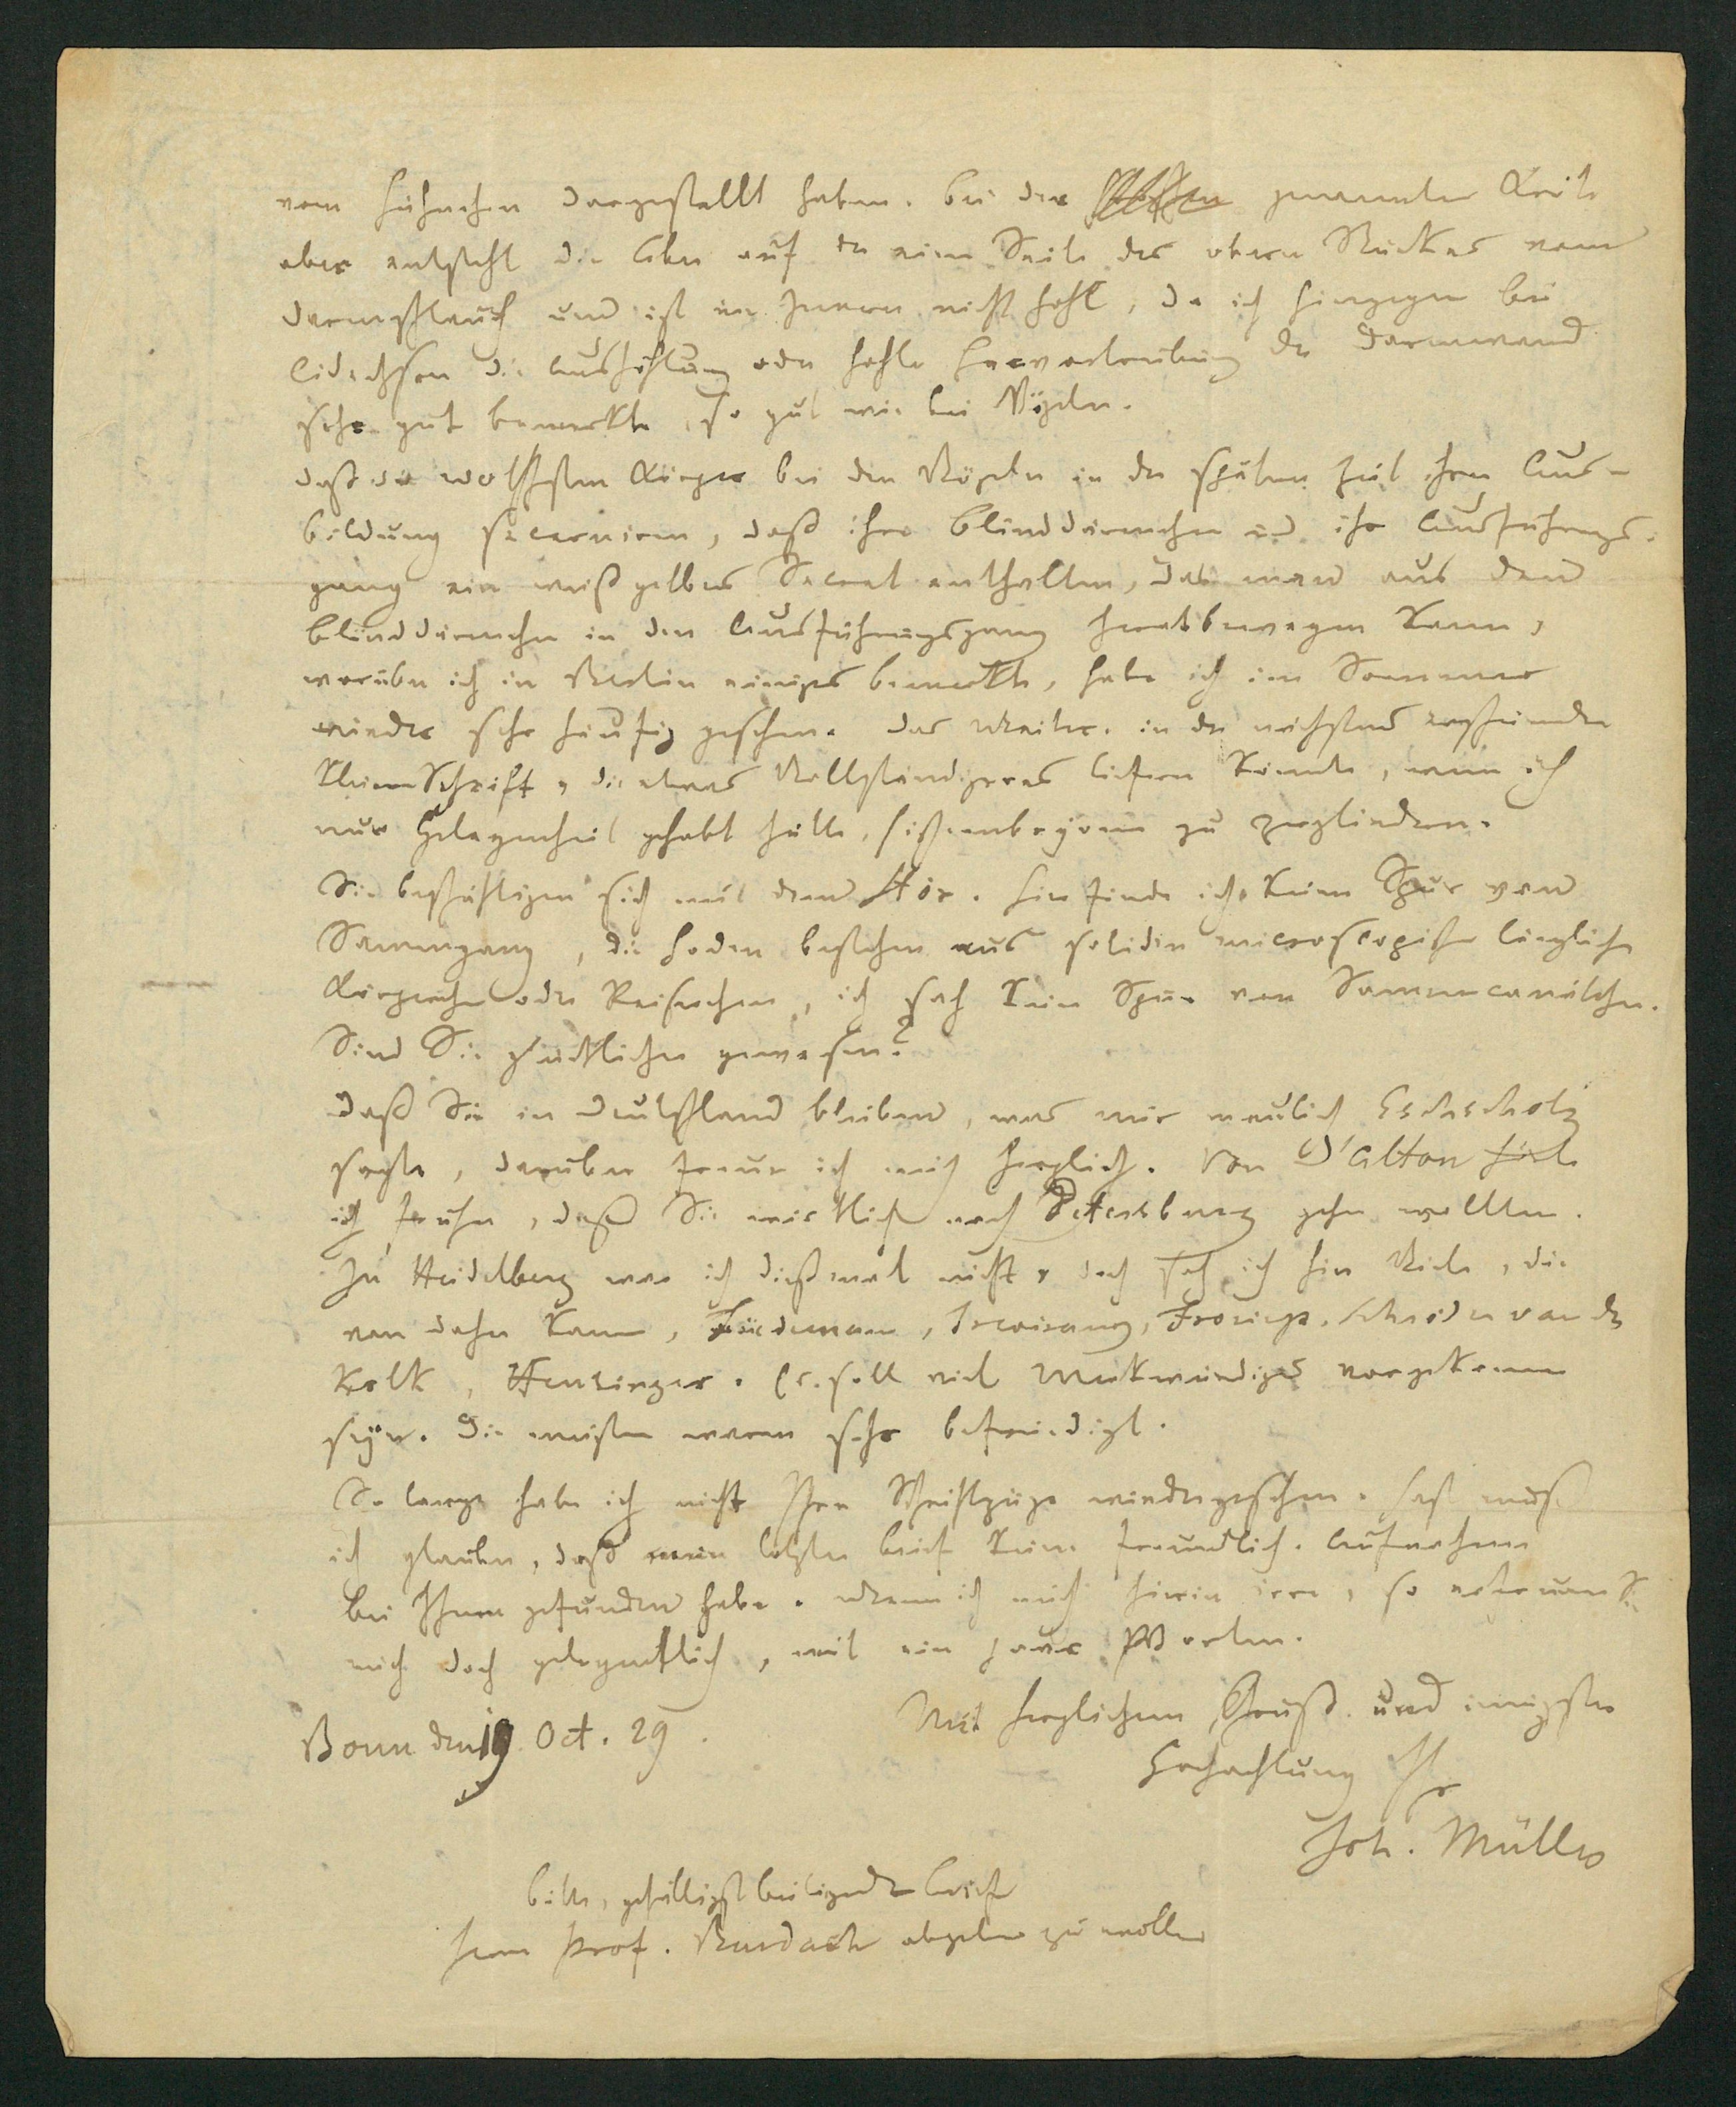 vom Hühnchen dargestellt haben. bei der genannten Kröte
aber entsteht die Leber auf der einen Seite des obern Stückes vom
Darmschlauch und ist im Innern nicht hohl, da ich hingegen bei
Eidechsen die Aushöhlung oder hohle Hervortreibung der Darmwand
sehr gut bemerkte, so gut wie bei Vögeln.
Daß die Wolffschen Körper bei den Vögeln in der spätern Zeit ihrer Aus-
bildung secerniren, daß ihre Blinddärmchen und ihr Ausführungs-
gang ein weißgelbes Secret enthalten, das man aus den
Blinddärmchen in den Ausführungsgang herabbewegen kann,
worüber ich in Berlin einiges bemerkte, habe ich im Sommer
wieder sehr häufig gesehen. Das Weitere in der nächstens erscheinenden
kleinen Schrift, die etwas Vollständigeres liefern könnte, wenn ich
nur Gelegenheit gehabt hätte, Fischembryonen zu zergliedern.
Sie beschäftigen sich mit dem Stör. Hier finde ich keine Spur vom
Samengang, die Hoden bestehen aus soliden microscopischen länglichen
Körperchen oder Reischen, ich sah keine Spur von Samencanälchen.
Sind Sie glücklicher gewesen?
Daß Sie in Deutschland bleiben, was mir neulich Eschscholtz
sagte, darüber freue ich mich herzlich. Von D'Alton hörte
ich früher, daß Sie wirklich nach Petersburg gehen wollten.
In Heidelberg war ich dießmal nicht, doch sah ich hier Viele, die
von daher kamen, Tiedemann, Treviranus, Froriep, Schröder van der
Kolk, Heusinger. Es soll viel Merkwürdiges vorgekommen
seyn. Die meisten waren sehr befriedigt.
So lange habe ich nicht Ihre Schriftzüge wiedergesehen. Fast muß
ich glauben, daß mein letzter Brief keine freundliche Aufnahme
bei Ihnen gefunden habe. Wenn ich mich hierin irre, so erfreuen Sie
mich doch gelegentlich, mit ein paar Worten.
Mit herzlichem Gruß und innigster
Hochachtung Ihr
Bonn den 19 Oct. 29.
Joh. Müller
bitte, gefälligst beiliegenden Brief
Herrn Prof. Burdach abgeben zu wollen